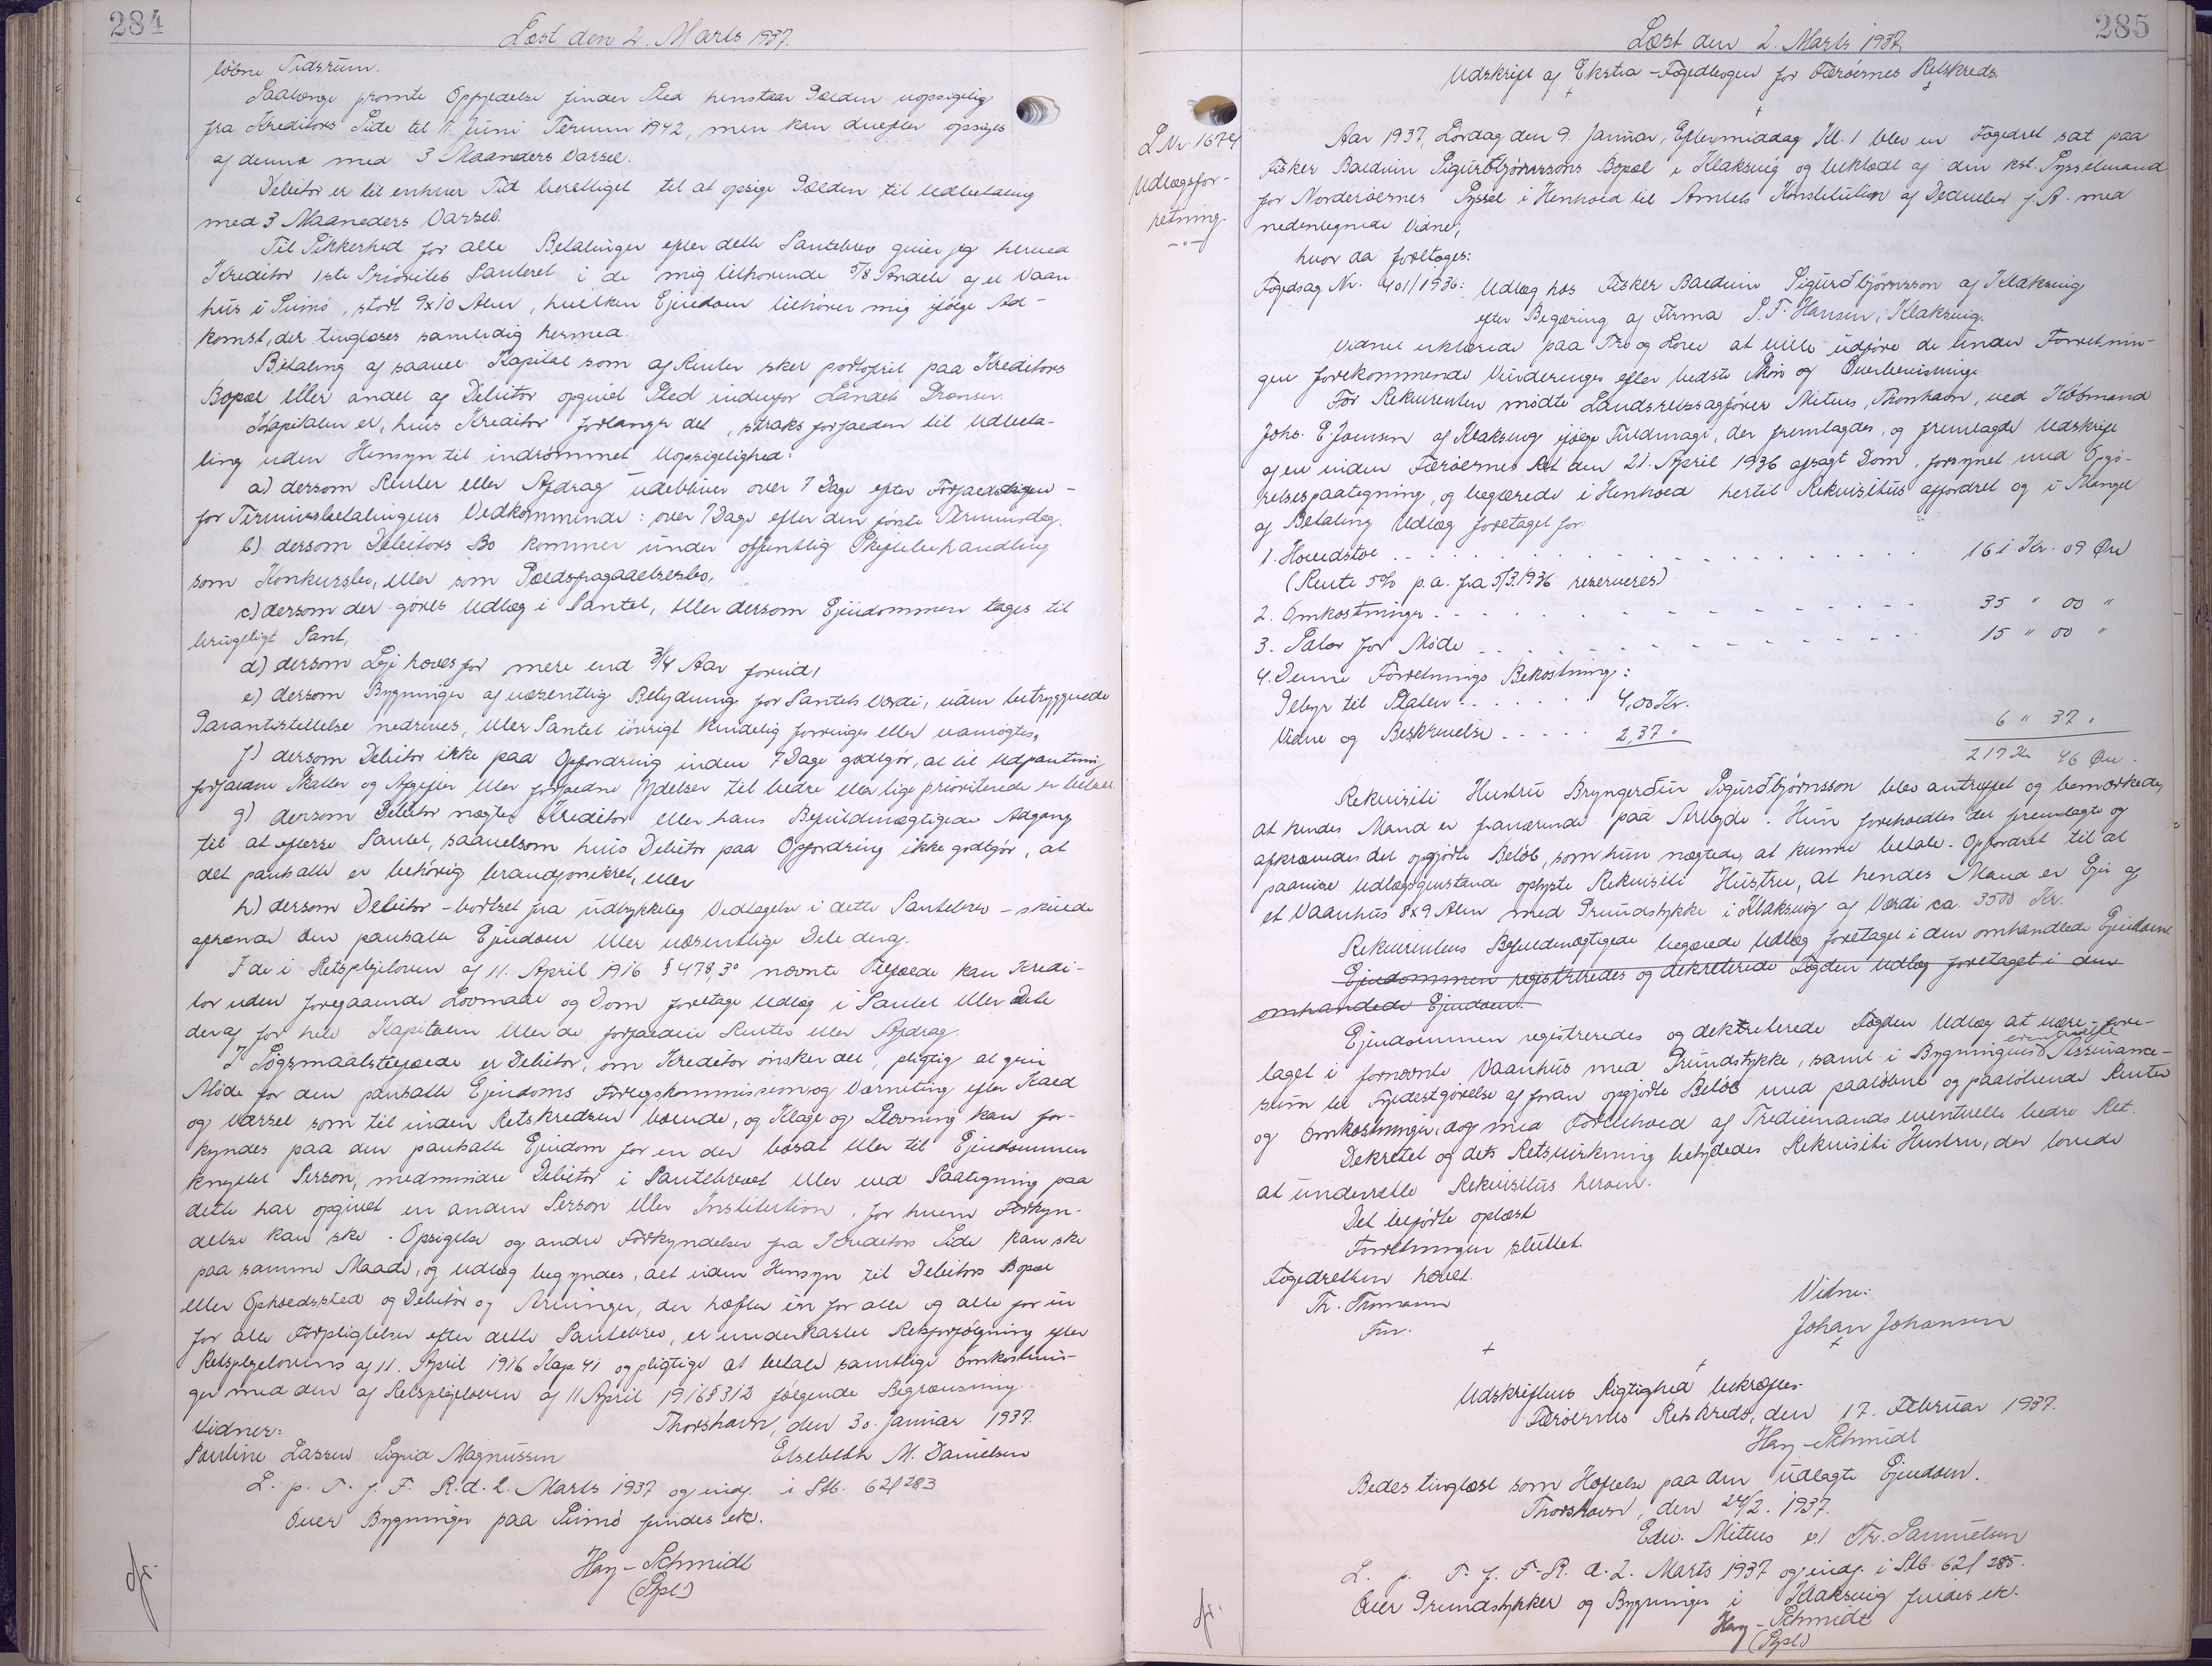 284
Læst den 2. Marts 1937.
løbne Tidsrum.
Saalænge promte Opfyldelse finder Sted henstaar Gælden uopsigelig
fra Kreditors Side til 11. Juni Termin 1942, men kan derefter opsiges
af denne med 3 Maaneders Varsel.
Debitor er til enhver Tid berettiget til at opsige Gælden til Udbetaling
med 3 Maaneders Varsel.
Til Sikkerhed for alle Betalinger efter dette Pantebrev giver jeg herved
Kreditor 1ste Prioritets Panteret i de mig tilhørende 5/8 Andele af et Vaan-
hus i Sumø, stort 9x10 Alen, hvilken Ejendom tilhører mig ifølge Ad-
komst, der tinglæses samtidig hermed.
Betaling af saavel Kapital som af Renter sker portofrit paa Kreditors
Bopæl eller andet af Debitor opgivet Sted indenfor Landets Grænser.
Kapitalen er, hvis Kreditor forlanger det, straks forfalden til Udbeta-
ling uden Hensyn til indrømmet Uopsigelighed:
a) dersom Renter eller Afdrag udebliver over 7 Dage efter Forfaldsdagen -
for Terminsbetalingens Vedkommende: over 7 Dage efter den første Terminsdag.
b) dersom Debitors Bo kommer under offentlig Skiftebehandling
som Konkursbo, eller som Gældsfragaaelsesbo,
c) dersom der gøres Udlæg i Pantet, eller dersom Ejendommen tages til
brugeligt Pant,
d) dersom Leje hæves for mere end 3/4 Aar forud,
e) dersom Bygninger af væsentlig Betydning for Pantets Værdi, uden betryggende
Garantistillelse nedrives, eller Pantet iøvrigt kendelig forringes eller vanrøgtes,
f) dersom Debitor ikke paa Opfordring inden 7 Dage godtgør, at til Udpantning
forfaldne Skatter og Afgifter eller forfaldne Ydelser til bedre eller lige prioriterede er betalt
g) dersom Debitor nægter Kreditor eller hans Befuldmægtigede Adgang
til at efterse Pantet, saavelsom hvis Debitor paa Opfordring ikke godtgør, at
det pantsatte er behørig brandforsikret, eller
h) dersom Debitor - bortset fra udtrykkelig Vedtagelse i dette Pantebrev - skulde
afhænde den pantsatte Ejendom eller væsentlige Dele deraf.
I de i Retsplejeloven af 11. April 1916 § 478, 3° nævnte Tilfælde kan Kredi-
tor uden foregaaende Lovmaal og Dom foretage Udlæg i Pantet eller Dele
deraf for hele Kapitalen eller de forfaldne Renter eller Afdrag.
I Søgsmaalstilfælde er Debitor, om Kreditor ønsker det, pligtig at give
Møde for den pantsatte Ejendoms Forligskommission og Værneting efter Kald
og Varsel som til inden Retskredsen boende, og Klage og Stævning kan for-
kyndes paa den pantsatte Ejendom for en der bosat eller til Ejendommen
knyttet Person, medmindre Debitor i Pantebrevet eller ved Paategning paa
dette har opgivet en anden Person eller Institution, for hvem Forkyn-
delse kan ske. Opsigelse og andre Forkyndelser fra Kreditors Side kan ske
paa samme Maade, og Udlæg begyndes, alt uden Hensyn til Debitors Bopæl
eller Opholdssted og Debitor og Arvinger, der hæfter en for alle og alle for en
for alle Forpligtelser efter dette Pantebrev, er underkastet Retsforfølgning efter
Retsplejelovens af 11. April 1916 Kap 41 og pligtige at betale samtlige Omkostnin-
ger med den af Retsplejeloven af 11 April 1916 § 312 følgende Begrænsning.
Vidner: Thorshavn, den 30. Januar 1937.
Pauline Lassen Sigrid Magnussen Elsebeth M. Danielsen
L. p. T. f. F. R. d. 2. Marts 1937 og indf. i Stb. 62f 283
Over Bygninger paa Sumø findes ik.
Hay-Schmidt
(Spl.)
285
Læst den 2. Marts 1937
Udskrift af Ekstra-Fogedbogen for Færøernes Retskreds.
L Nr. 1674
Udlægsfor-
retning.
Aar 1937, Lørdag den 9. Januar, Eftermiddag Kl. 1 blev en Fogedret sat paa
Fisker Balduin Sigurdbjørnssons Bopæl i Klaksvig og beklædt af den kst. Sysselmand
for Norderøernes Syssel i Henhold til Amtets Konstitution af December f. A. med
nedentegnede Vidne,
hvor da foretoges:
Fogedsag Nr. 401/1936: Udlæg hos Fisker Balduin Sigurðbjørnsson af Klaksvig
efter Begæring af Firma S. F. Hansen, Klaksvig.
Vidnet erklærede paa Tro og Love at ville udføre de under Forretnin-
gen forekommende Vurderinger efter bedste Skøn og Overbevisning.
For Rekvirenten mødte Landsretssagfører Mitens, Thorshavn, ved Købmand
Johs. E. Joensen af Klaksvig ifølge Fuldmagt, der fremlagdes, og fremlagde Udskrift
af en inden Færøernes Ret den 21. April 1936 afsagt Dom, forsynet med Opgø-
relsespaategning, og begærede i Henhold hertil Rekvisitus affordret og i Mangel
af Betaling Udlæg foretaget for:
1. Hovedstol . . . . . . 161 Kr. 09 Øre
(Rente 5% p.a. fra 5/3.1936 reserveres)
2. Omkostninger . . . . . . 35 " 00 "
3. Salær for Møde . . . . . . 15 " 00 "
4. Denne Forretnings Bekostning:
Gebyr til Staten . . . . . . 4,00 Kr.
Vidne og Beskrivelse . . . . . 2,37 " 6 " 37 "
217 Kr 46 Øre.
Rekvisiti Hustru Bryngerðun Sigurðbjørnsson blev antruffet og bemærkede,
at hendes Mand er fraværende paa Arbejde. Hun foreholdtes det fremlagte og
afkrævedes det opgjorte Beløb, som hun nægtede, at kunne betale. Opfordret til at
paavise Udlægsgenstande oplyste Rekvisiti Hustru, at hendes Mand er Ejer af
et Vaanhus 8x9 Alen med Grundstykke i Klaksvig af Værdi ca. 3500 Kr.
Rekvirentens Befuldmægtigede begærede Udlæg foretaget i den omhandlede Ejendom
Ejendommen registreredes og dekreterede Fogden Udlæg foretaget i den
omhandlede Ejendom.
Ejendommen registreredes og dekreterede Fogden Udlæg at være fore-
taget i fornævnte Vaanhus med Grundstykke, samt i Bygningens eventuelle Assurance-
sum til Fyldestgørelse af foran opgjorte Beløb med paaløbne og paaløbende Renter
og Omkostninger, dog med Forbehold af Trediemands eventuelle bedre Ret.
Dekretet og dets Retsvirkning betydedes Rekvisiti Hustru, der lovede
at underrette Rekvisitus herom.
Det tilførte oplæst
Forretningen sluttet.
Fogedretten hævet.
Th. Thomann
Fm.
Vidne:
Johan Johansen
Udskriftens Rigtighed bekræftes.
Færøernes Retskreds, den 17. Februar 1937.
Hay-Schmidt
Bedes tinglæst som Hæftelse paa den udlagte Ejendom.
Thorshavn, den 24/2. 1937.
Edw. Mitens e.f. Fr. Samuelsen
L. p. T. f. F. R. d. 2. Marts 1937 og indf. i Stb. 62f 285.
Over Grundstykker og Bygninger i Klaksvig findes ik.
Hay-Schmidt
(Spl.)